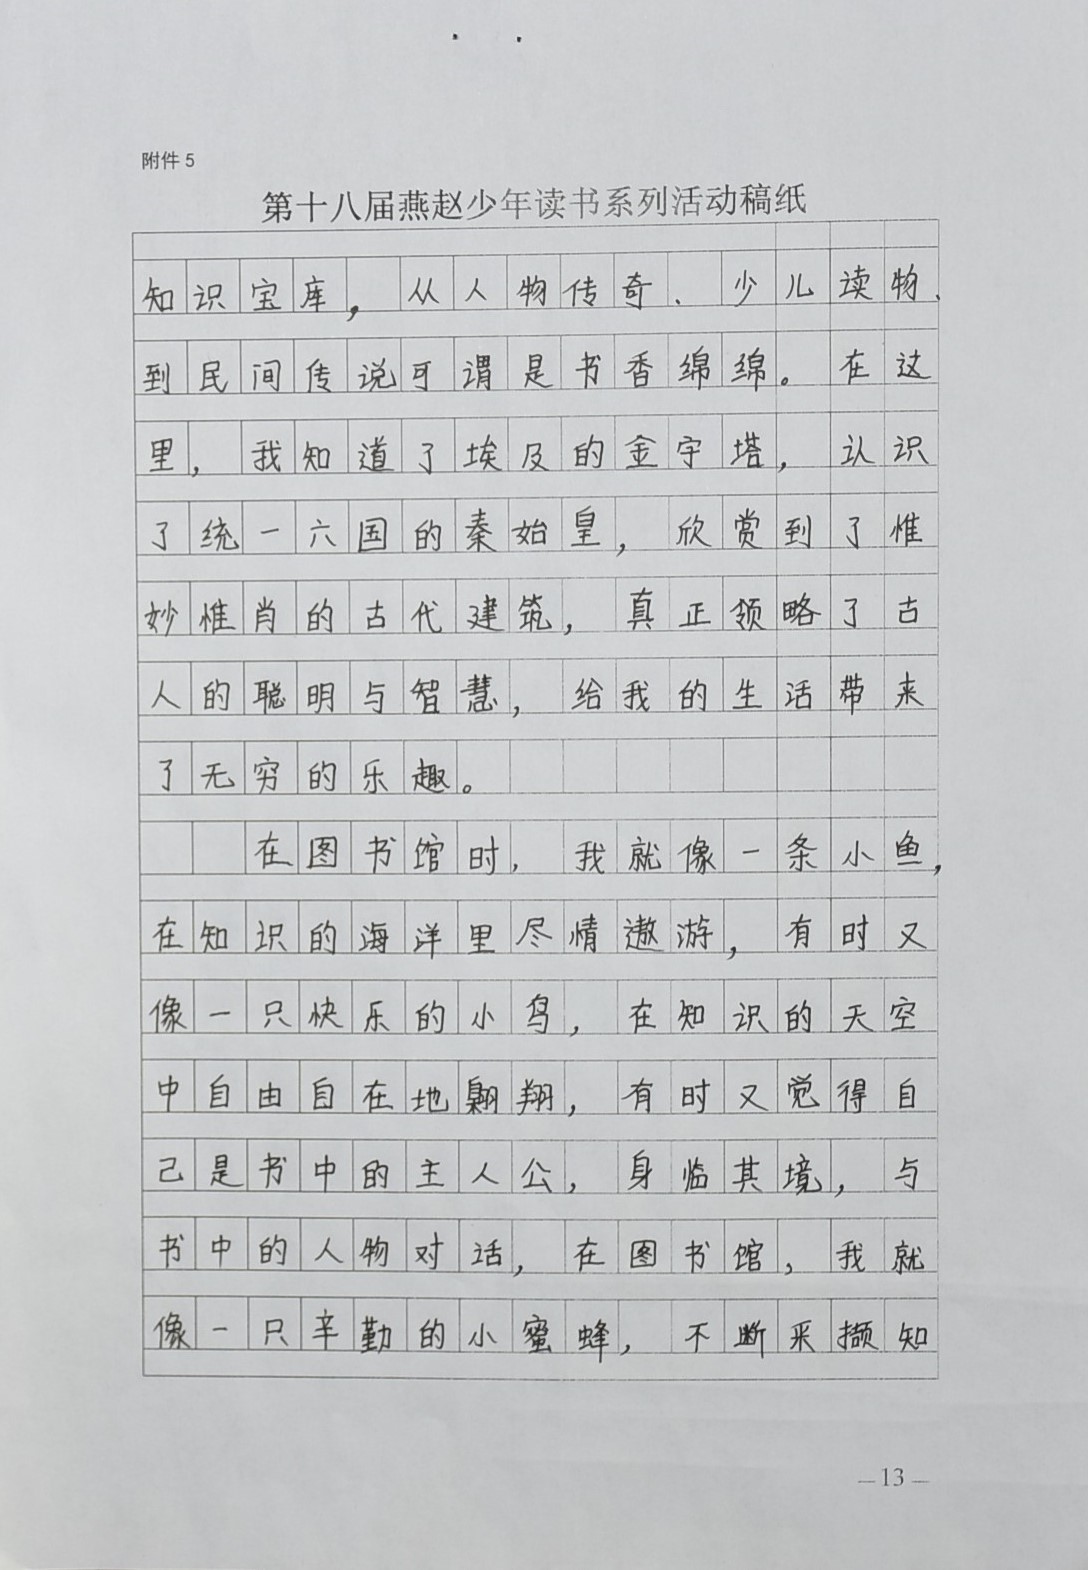 附件 5
第十八届燕赵少年读书系列活动稿纸
知识宝库，从人物传奇、少儿读物、
到民间传说可谓是书香绵绵。在这
里，我知道了埃及的金字塔，认识
了统一六国的秦始皇，欣赏到了惟
妙惟肖的古代建筑，真正领略了古
人的聪明与智慧，给我的生活带来
了无穷的乐趣。
在图书馆时，我就像一条小鱼，
在知识的海洋里尽情遨游，有时又
像一只快乐的小鸟，在知识的天空
中自由自在地翱翔，有时又觉得自
己是书中的主人公，身临其境，与
书中的人物对话，在图书馆，我就
像一只辛勤的小蜜蜂，不断采撷知
— 13 —